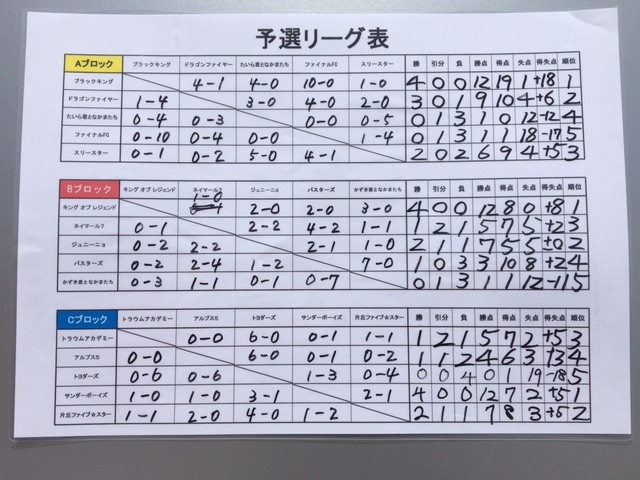 予選リーグ表
Aブロック ブラックキング ドラゴンファイヤー たいら君となかまたち ファイナルFC スリースター 勝 引分 負 勝点 得点 失点 得失点 順位
ブラックキング 4-1 4-0 10-0 1-0 4 0 0 12 19 1 +18 1
ドラゴンファイヤー 1-4 3-0 4-0 2-0 3 0 1 9 10 4 +6 2
たいら君となかまたち 0-4 0-3 0-0 0-5 0 1 3 1 0 12 -12 4
ファイナルFC 0-10 0-4 0-0 1-4 0 1 3 1 1 18 -17 5
スリースター 0-1 0-2 5-0 4-1 2 0 2 6 9 4 +5 3
Bブロック キング オブ レジェンド ネイマール7 ジュニーニョ バスターズ かずき君となかまたち 勝 引分 負 勝点 得点 失点 得失点 順位
キング オブ レジェンド 1-0 2-0 2-0 3-0 4 0 0 12 8 0 +8 1
ネイマール7 0-1 2-2 4-2 1-1 1 2 1 5 7 5 +2 3
ジュニーニョ 0-2 2-2 2-1 1-0 2 1 1 7 5 5 ±0 2
バスターズ 0-2 2-4 1-2 7-0 1 0 3 3 10 8 +2 4
かずき君となかまたち 0-3 1-1 0-1 0-7 0 1 3 1 1 12 -11 5
Cブロック トラウムアカデミー アルプスS トヨダーズ サンダーボーイズ 片丘ファイブ☆スター 勝 引分 負 勝点 得点 失点 得失点 順位
トラウムアカデミー 0-0 6-0 0-1 1-1 1 2 1 5 7 2 +5 3
アルプスS 0-0 6-0 0-1 0-2 1 1 2 4 6 3 +3 4
トヨダーズ 0-6 0-6 1-3 0-4 0 0 4 0 1 19 -18 5
サンダーボーイズ 1-0 1-0 3-1 2-1 4 0 0 12 7 2 +5 1
片丘ファイブ☆スター 1-1 2-0 4-0 1-2 2 1 1 7 8 3 +5 2